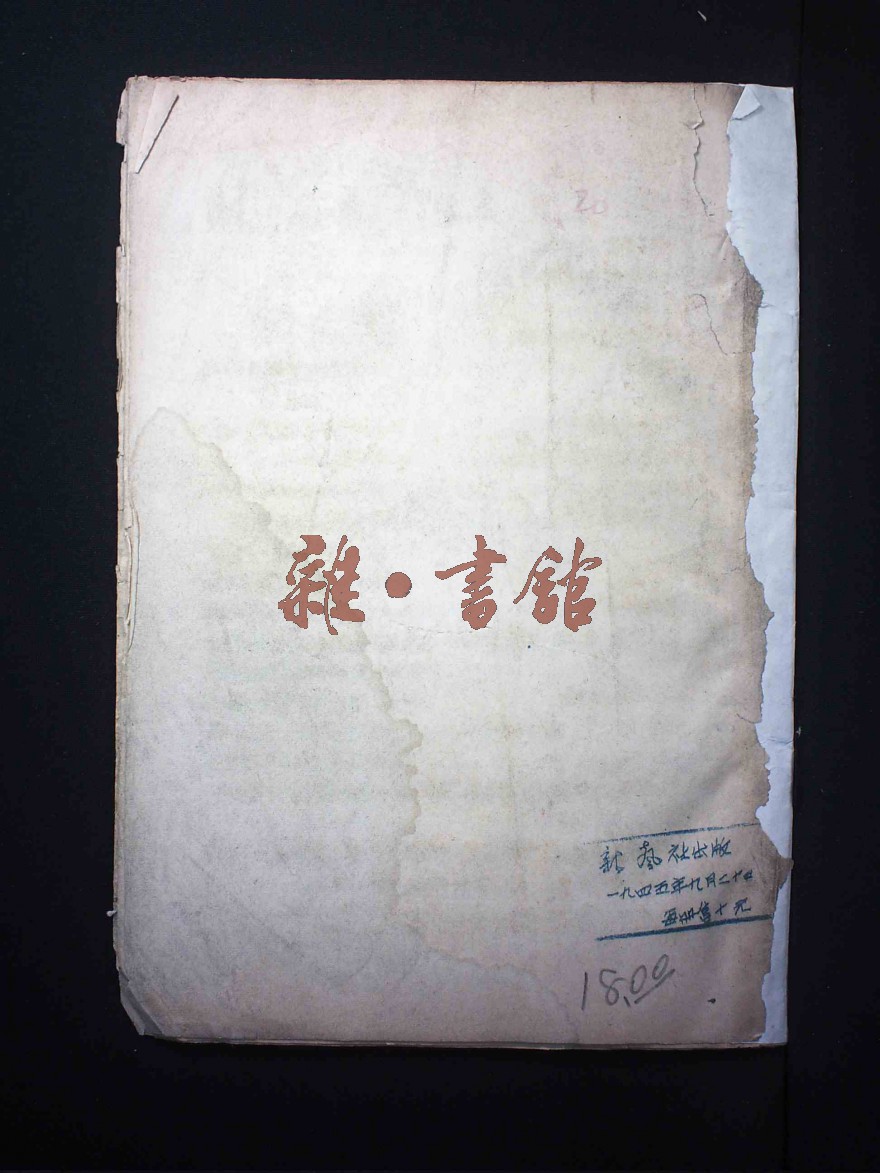 20
雜·書館
新藝社出版
一九四五年九月二十日
每冊售十元
18.00